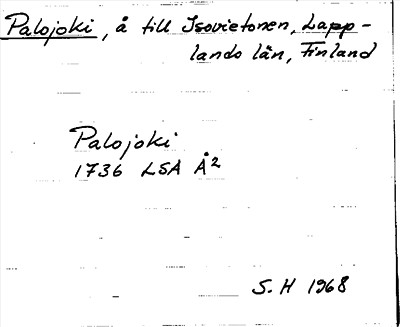 Palojoki, å till Isovietonen, Lapp-
lands län, Finland
Palojoki
1736 LSA Å2
S.H 1968